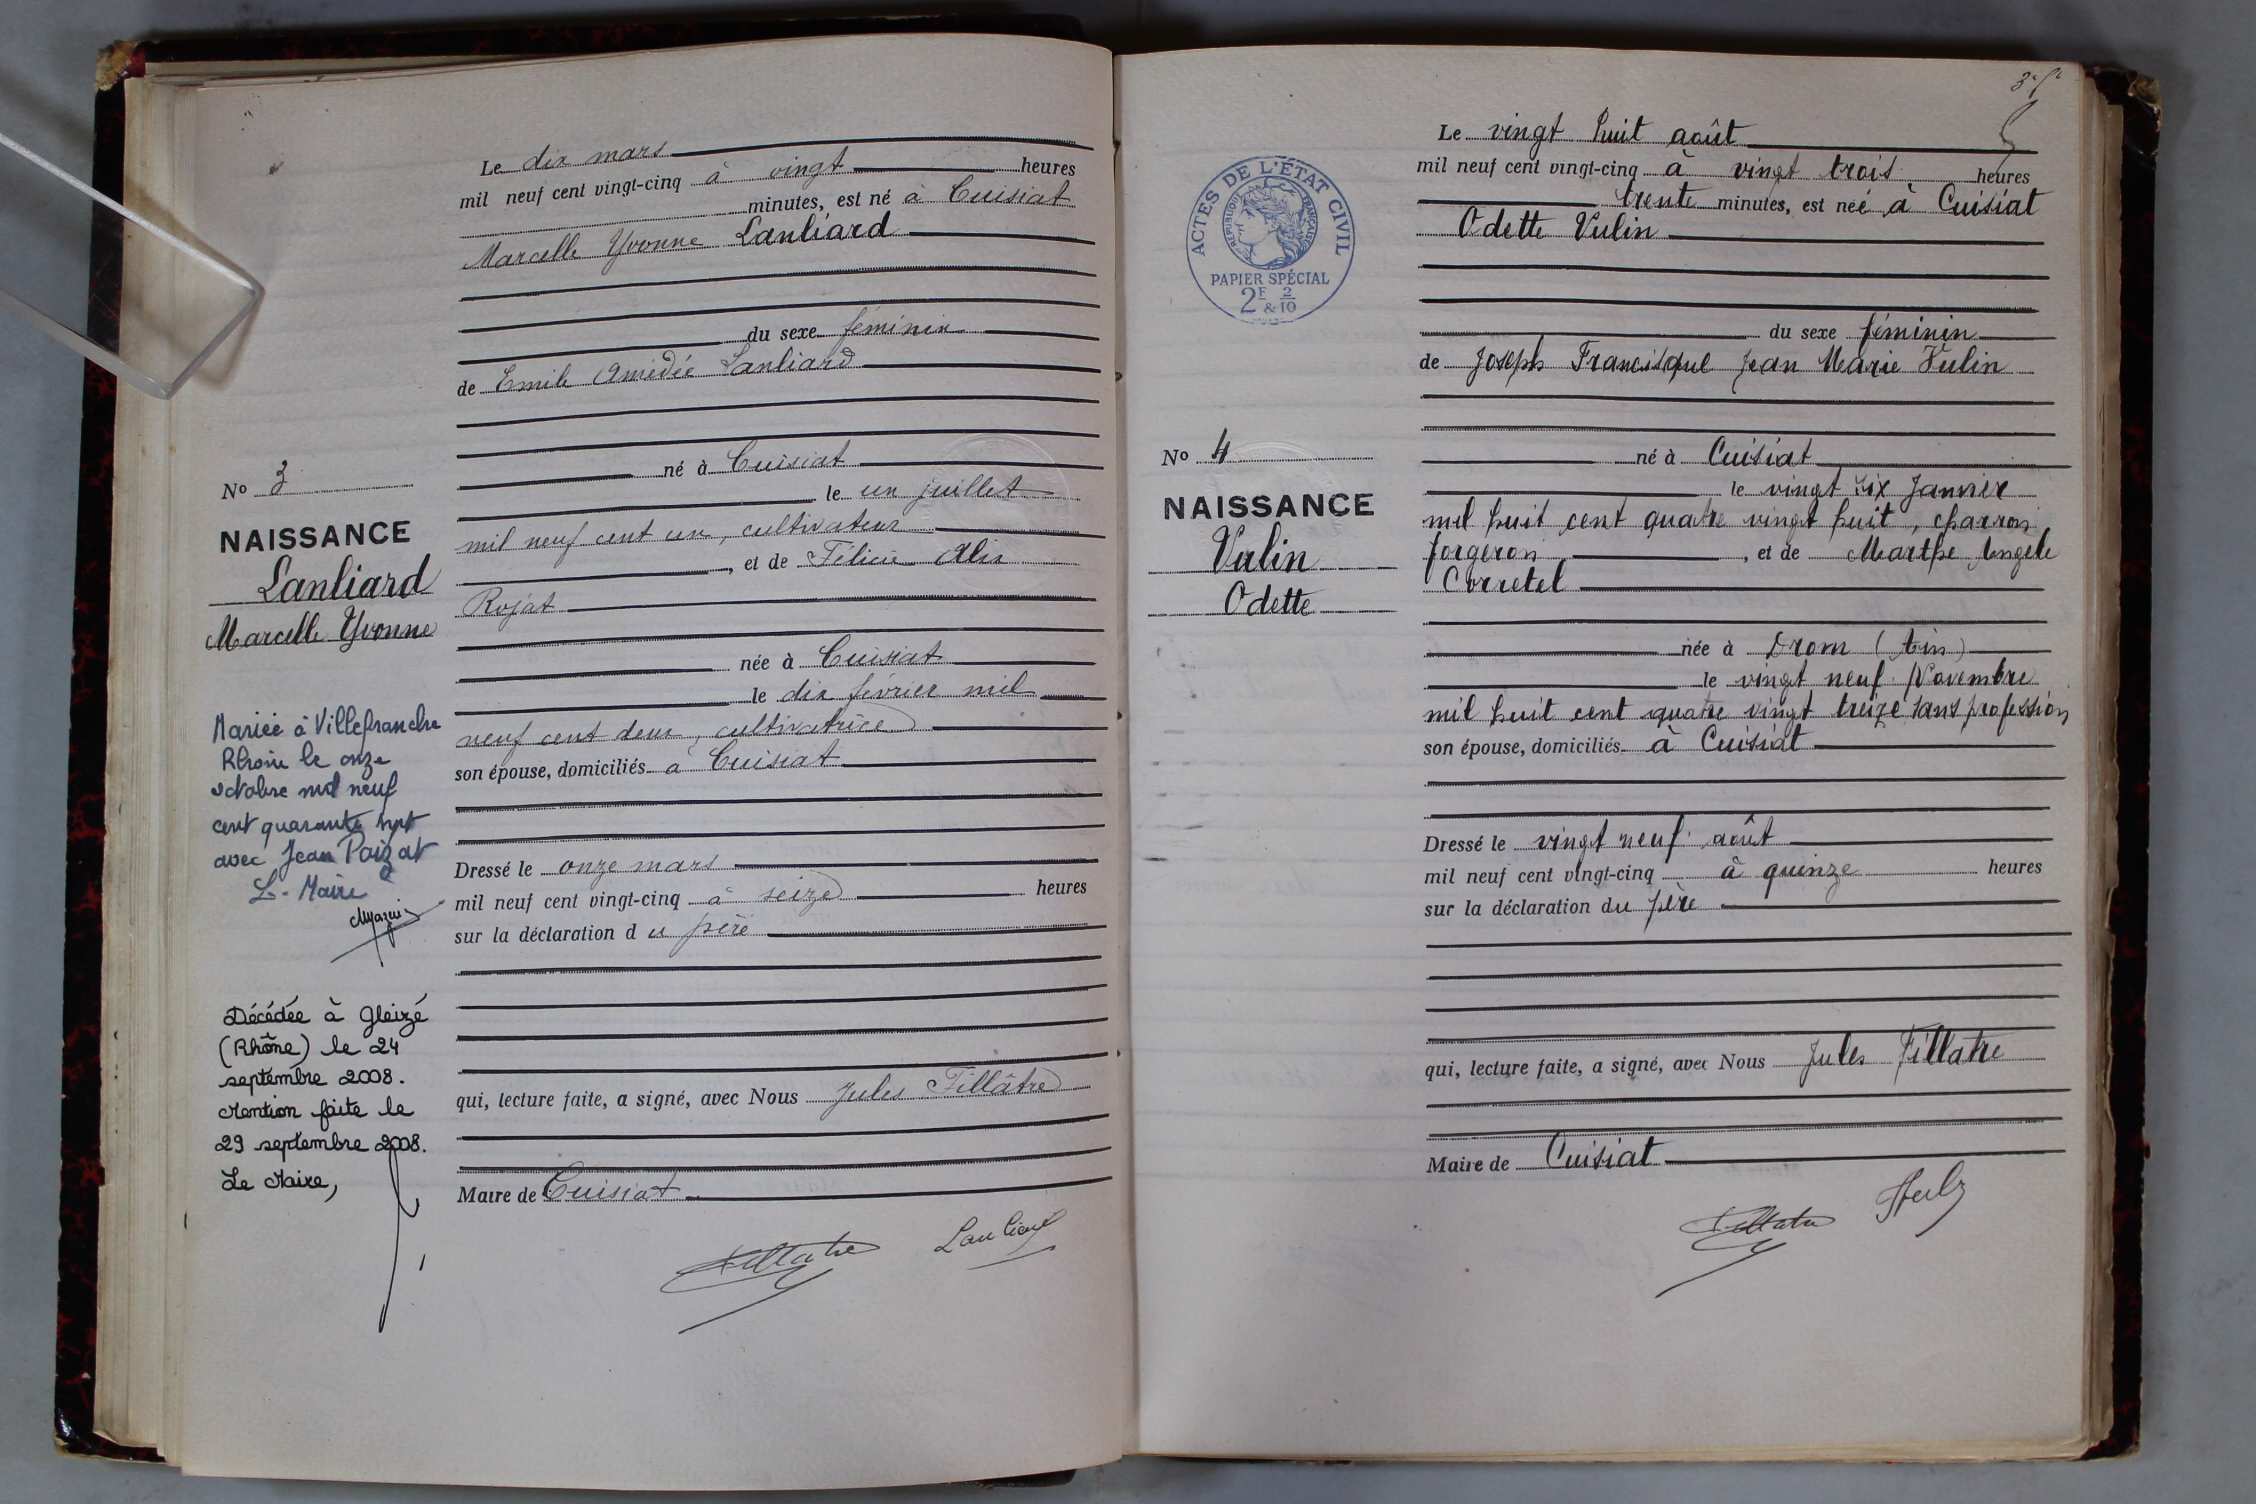 Le dix mars
mil neuf cent vingt-cinq à vingt heures
minutes, est né à Cuisiat
Marcelle Yvonne Lanliard
du sexe féminin
de Emile Amédée Lanliard
né à Cuisiat
le un juillet
mil neuf cent un, cultivateur
, et de Félicie Alix
Rojat
née à Cuisiat
le dix février mil
neuf cent deux, cultivatrice
son épouse, domiciliés à Cuisiat
Dressé le onze mars
mil neuf cent vingt-cinq à seize heures
sur la déclaration du père
qui, lecture faite, a signé, avec Nous Jules Fillâtre
Maire de Cuisiat
Fillatre Lanliard
No 3
NAISSANCE
Lanliard
Marcelle Yvonne
Mariée à Villefranche
Rhône le onze
octobre mil neuf
cent quarante sept
avec Jean Paizat
Le Maire
Décédée à Gleizé
(Rhône) le 24
septembre 2008.
Mention faite le
29 septembre 2008.
Le Maire,
ACTES DE L'ÉTAT CIVIL
RÉPUBLIQUE FRANÇAISE
PAPIER SPÉCIAL
2F & 2/10
No 4
NAISSANCE
Vulin
Odette
Le vingt huit août
mil neuf cent vingt-cinq à vingt trois heures
trente minutes, est née à Cuisiat
Odette Vulin
du sexe féminin
de Joseph Francisque Jean Marie Vulin
né à Cuisiat
le vingt six Janvier
mil huit cent quatre vingt huit, charron
forgeron, et de Marthe Angèle
Corretel
née à Drom (Ain)
le vingt neuf Novembre
mil huit cent quatre vingt treize sans profession
son épouse, domiciliés à Cuisiat
Dressé le vingt neuf août
mil neuf cent vingt-cinq à quinze heures
sur la déclaration du père
qui, lecture faite, a signé, avec Nous Jules Fillatre
Maire de Cuisiat
Fillatre